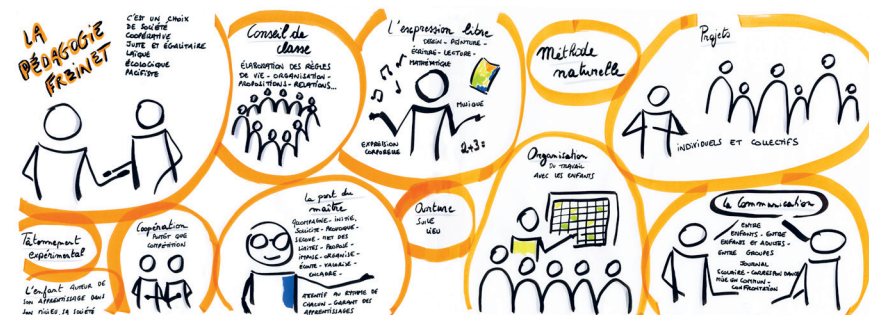 LA
PÉDAGOGIE
FREINET
C'EST UN CHOIX
DE SOCIÉTÉ
COOPÉRATIVE
JUSTE ET ÉGALITAIRE
LAÏQUE
ÉCOLOGIQUE
PACIFISTE
Conseil de
classe
ÉLABORATION DES RÈGLES
DE VIE - ORGANISATION -
PROPOSITIONS - RELATIONS...
L'expression libre
DESSIN - PEINTURE -
ÉCRITURE - LECTURE -
MATHÉMATIQUE
MUSIQUE
EXPRESSION
CORPORELLE
2+3=
Méthode
naturelle
Projets
INDIVIDUELS ET COLLECTIFS
Tâtonnement
expérimental
L'enfant AUTEUR DE
SON APPRENTISSAGE DANS
SON MILIEU, SA SOCIÉTÉ
Coopération
PLUTÔT QUE
COMPÉTITION
La part du
maître
ACCOMPAGNE - INITIE,
SOLLICITE - PROVOQUE -
SECOUE - MET DES
LIMITES - PROPOSE -
IMPOSE - ORGANISE -
ÉCOUTE - VALORISE -
ENCADRE -
ATTENTIF AU RYTHME DE
CHACUN - GARANT DES
APPRENTISSAGES
Ouverture
SUR LE
LIEU
Organisation
DU TRAVAIL
AVEC LES ENFANTS
La Communication
ENTRE
ENFANTS - ENTRE
ENFANTS ET ADULTES -
ENTRE GROUPES
JOURNAL
SCOLAIRE - CORRESPONDANCE
MISE EN COMMUN -
CONFRONTATION